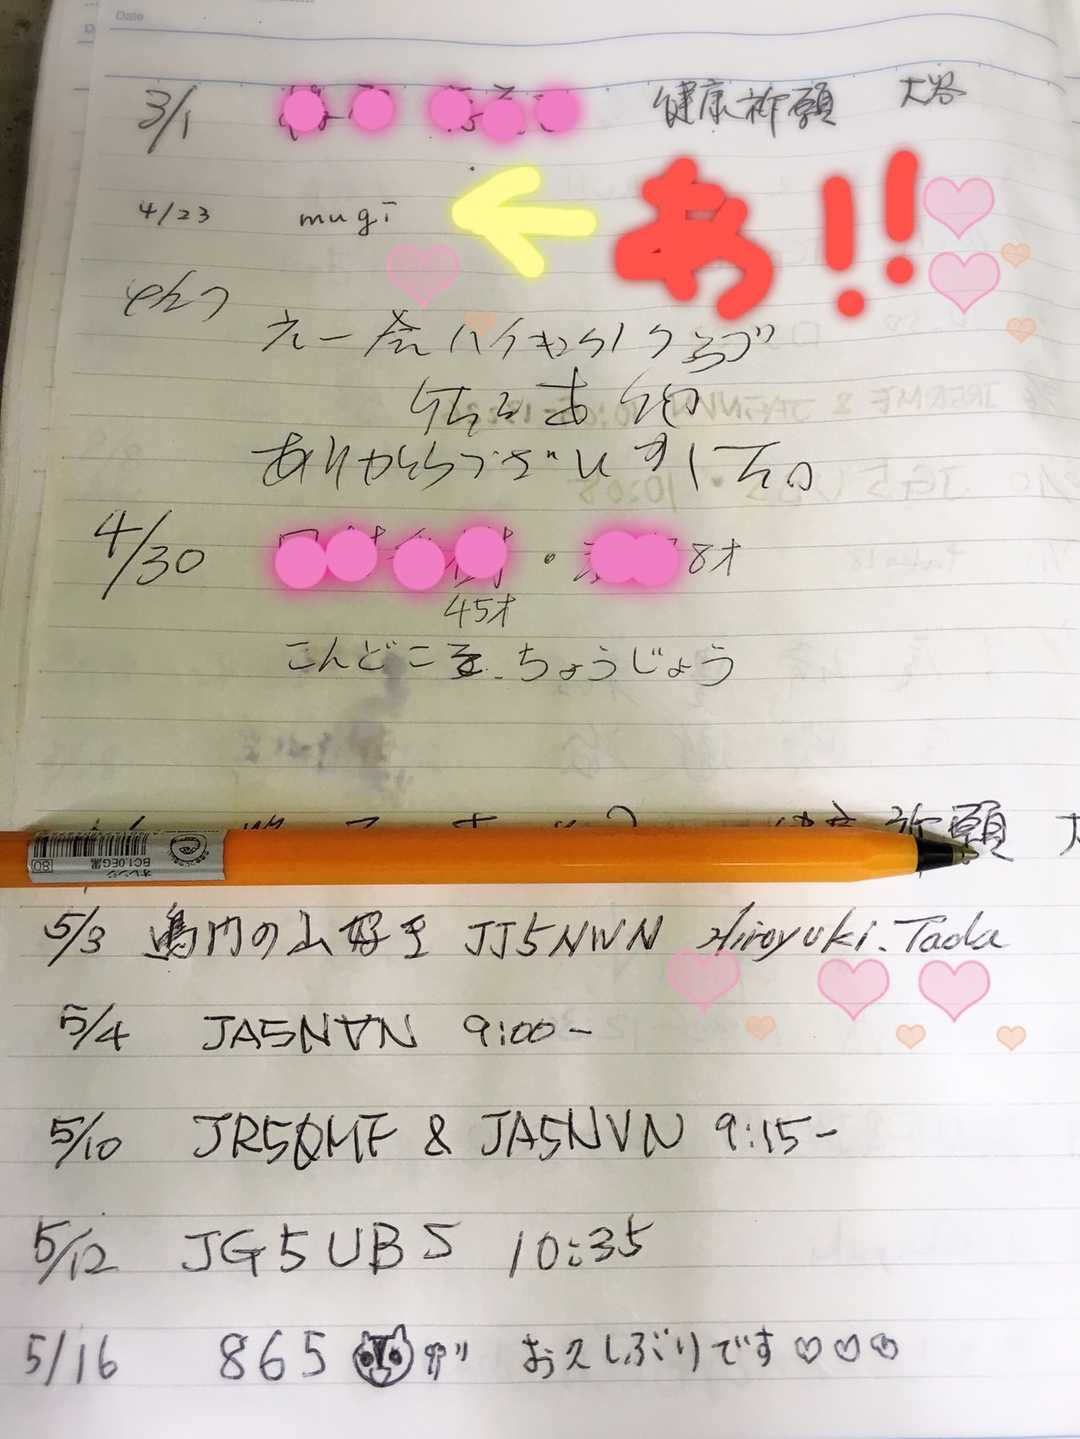 Date
3/1 健康祈願 大谷
4/23 mugi あ!!
ハイキングクラブ
ありがとうございます
4/30 ・ 8才
45才
こんどこそ ちょうじょう
祈願 大
オレンジ
BC1.0EG黒
80
5/3 鳴門の山好き JJ5NWN Hiroyuki.Tada
5/4 JA5NVN 9:00-
5/10 JR5QMF & JA5NVN 9:15-
5/12 JG5UBS 10:35
5/16 865 お久しぶりです♡♡♡